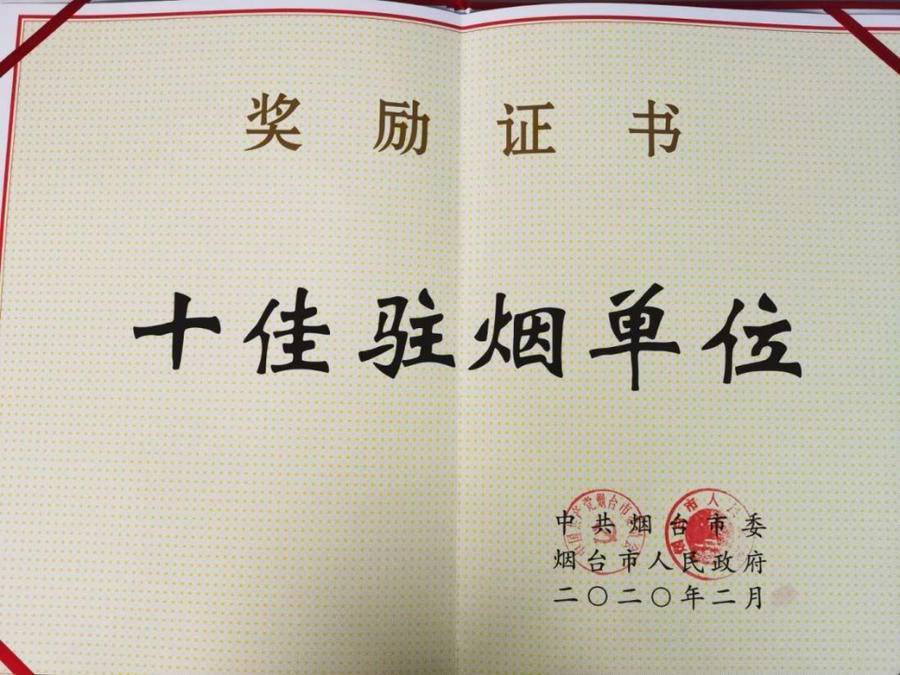 奖励证书
十佳驻烟单位
中共烟台市委
烟台市人民政府
二〇二〇年二月